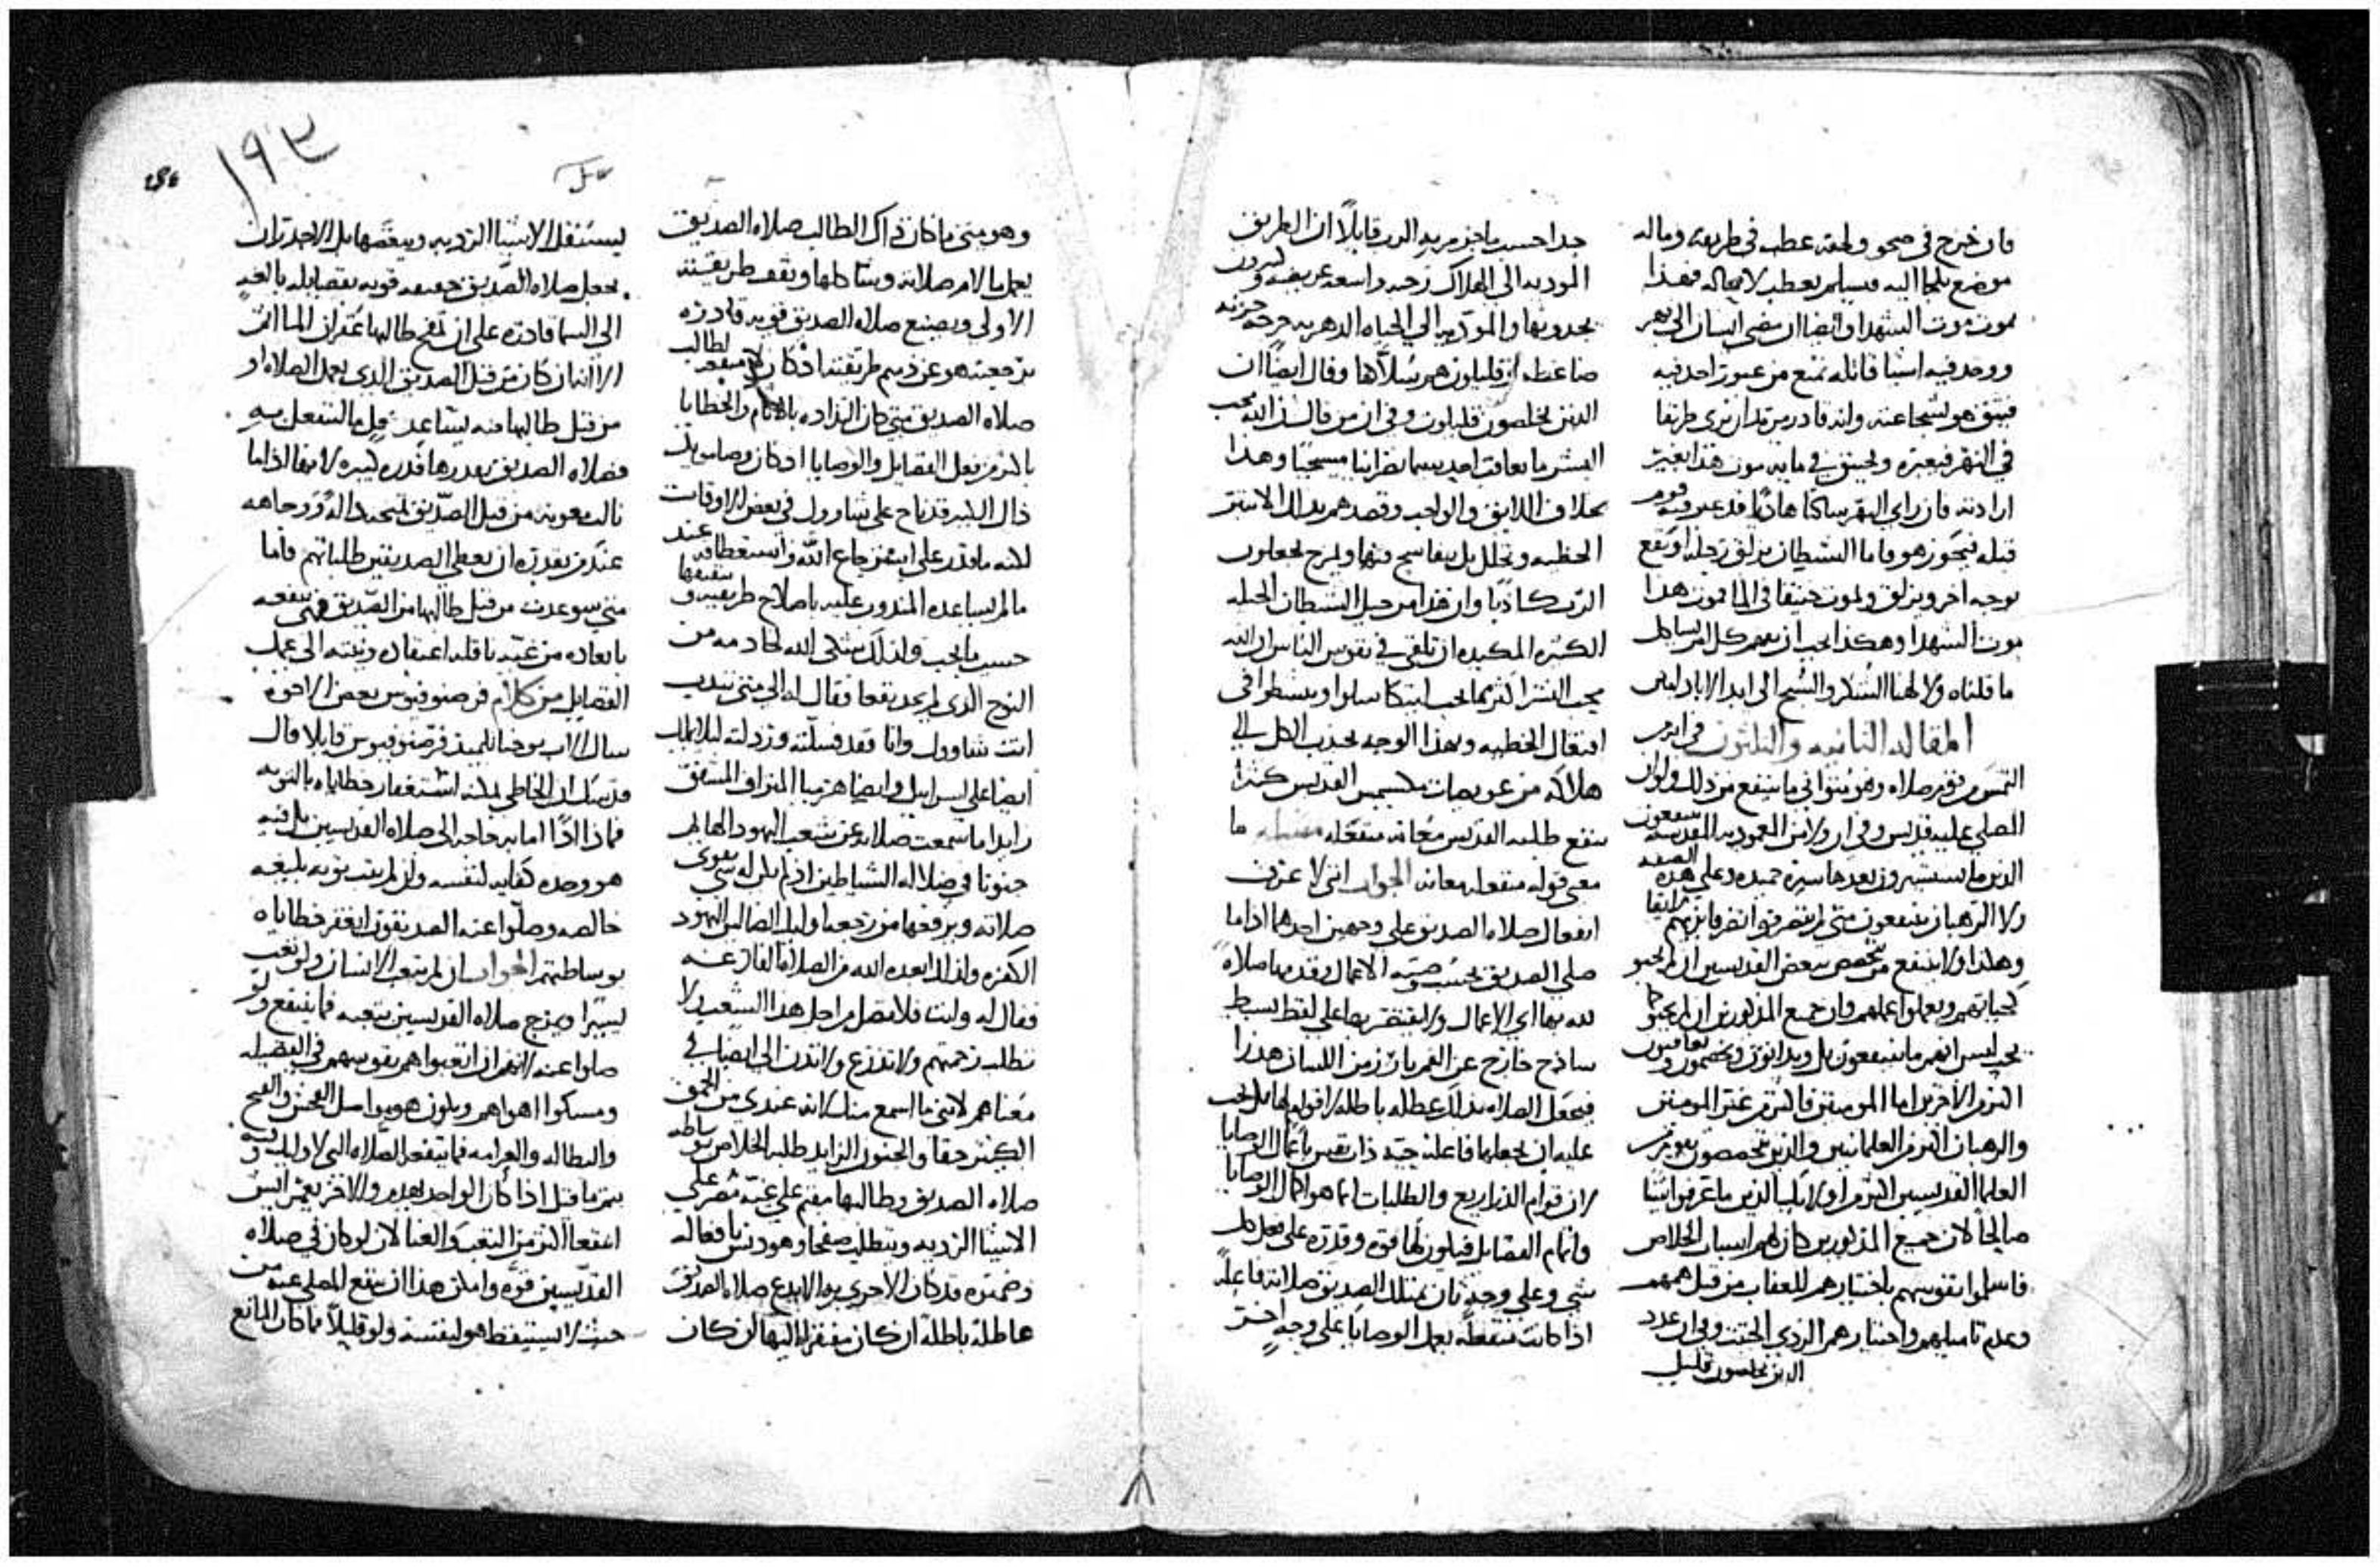 فان خرج في صحو ولحقه عطب في طريقه وماله
موضع يلتجا اليه فيسلم يعطب لا محاله فهذا
يموت موت الشهدا وايضا ان مضى انسان الى نهر
ووجد فيه اشيا قاتله تمنع من عبور احد فيه
في النهر فيعبره
ارادته فان راى النهر ساكنا هاديا قد عبر فيه قوم
قبله فيجوز هو فاما الشيطان يزلق رجله او يقع
بوجه اخر ويزلق ويموت خنيقا في الما فموت هذا
موت الشهدا وهكذا يجب ان نفهم كل امر يشاكل
ما قلناه ولالهنا الشكر والسبح الى ابد الاباد امين
المقاله الثانيه والثلثون في ان من
التمس من قوم صلاه وهو متواني ما ينتفع من ذلك ولو ان
المصلي عليه قديس وفي ان ولا من المعموديه المقدسه ينتفعون
الذين ما يستسيرون بعدها سيره حميده وعلى هذه الصفه
ولا الرهبان ينتفعون متى لم يتصرفوا تصرفا
وهكذا ولا ينتفع من تخصص ببعض القديسين ان لم يحيو
كحياتهم ويعملوا اعمالهم وان جميع المذكورين ان لم يحيو كما
يجب ليس انهم ما ينتفعون بل ويدانون ويخصمون ويعاقبون
اكثر من الاخرين اما المومنين فاكثر من غير المومنين
والرهبان اكثر من العلمانيين والذين يتخصصون
العلما القديسين اكثر من اوليك الذين ما عرفوا شيا
صالحا لان جميع المذكورين كان لهم اسباب الخلاص
فاسلموا نفوسهم باختيارهم للعقاب من قبل
وعدم تاميلهم واختيارهم الردي الخبيث وفي ان عدد
الذين يخلصون قليل
جدا حسب ما خبر به الرب قايلا ان الطريق
الموديه الى الهلاك رحبه واسعه عريضه وكثيرون
يجدونها والموديه الى الحياه الدهريه حرجه حزنه
ضاغطه وقليلون هم سلاكها وقال ايضا ان
الذين يخلصون قليلون وفي ان من قال ان الله محب
البشر ما يعاقب احد سيما نصرانيا مسيحيا وهذا
بخلاف اللايق والواجب وقصدهم بذلك الاستتر
الرب كاذبا وان هذا من حيل الشيطان المحتاله
الكثيره المكيده ان تلقي في نفوس الناس ان الله
محب البشر اكثر مما يجب ليتكاسلوا وينشطوا في
افتعال الخطيه وبهذا الوجه يجذب الكل الى
هلاكه من عويصات مكسيمس القديس كثيرا
ينفع طلبه القديس معانه منفعله ما
معنى قوله منفعله معانه الجواب انني لا عرف
انفعال صلاه الصديق على وجهين احدها اذا ما
صلى الصديق بحسب وصيه الاعمال وقدمها صلاه
لله بها اي الاعمال ولا يقتصر بها على لفظ بسيط
ساذج خارج عن الفم بارز من اللسان هذرا
فيجعل الصلاه بذلك عطله باطله لا قوام لها بل يجب
عليه ان يجعلها فاعله حيه ذات نفس باعمال الوصايا
لان قوام الذراريع والطلبات انما هو اكمال الوصايا
واتمام الفضايل فيكون لها قوه وقدره على فعل كل
شي وعلى وجه ثان تمتلك الصديق صلاته فاعله
اذا كانت منفعله بعمل الوصايا على وجه اخر
وهو متى ما كان ذاك الطالب صلاه الصديق
يعمل ما لام صلاته وشاكلها ويقف طريقته
الاولى ويصنع صلاه الصديق قويه قادره
برجعته هو عن ذميم طريقته اذ كان لا منفعه لطالب
صلاه الصديق متى كان التذاده بالاثام والخطايا
باكثر من فعل الفضايل والوصايا اذ كان وصامويل
ذاك الكبير قد ناح على شاوول في بعض الاوقات
لكنه ما قدر على استرجاع الله واستعطافه عند
ما لم يساعده المنذور عليه باصلاح طريقته وتثقيفها
حسب ما يجب ولذلك يثني الله خادمه من
النوح الذي لم يجد نفعا فقال له الى متى تندب
انت شاوول وانا فقد فسلته ورذلته ليلا يملك
ايضا على اسرايل وايضا هرميا المتراف المشفق
زايدا ما سمعت صلاته عن شعب اليهود الهايم
جنونا في ضلاله الشياطين اذ لم يكن له شي يقوي
صلاته ويرفقها من رجعه اوليك الضالين اليهود
الكفره ولذلك ابعده الله من الصلاه الفارغه
فقال له وانت فلا تصل من اجل هذا الشعب ولا
تطلب رحمتهم ولا تتذرع ولا تدن الي ايضا في
معناهم لانني ما اسمع منك لانه عندي من الحمق
الكثير حقا والجنون الزايد طلبه الخلاص بوساطه
صلاه الصديق وطالبها مقيم على غيه مصر على
الاشيا الرديه ويتطلب صفحا وهو دنس بافعاله
وضميره قد كان الاحرى به الا يدع صلاه الصديق
عاطله باطله ان كان مفتقرا اليها لن كان
ليستثقل الاشيا الرديه ويبغضها بل الاجدر ان
يجعل صلاه الصديق خفيفه قويه بفضايله بالغه
الى السما قادره على ان تمنح طالبها غفران المااثم
الا انه ان كان من قبل الصديق الذي يعمل الصلاه او
من قبل طالبها منه يساعد كل ما
فصلاه الصديق بقدرها قدره كبيره لانها اذا ما
نالت معونه من قبل الصديق تمنحه داله ووجاهه
عند من بقدرته ان يعطي الصديقين طلباتهم فاما
متى سوعدت من قبل طالبها من الصديق فهي تنفعه
بابعاده من غيه ناقله اعتقاده ونيته الى عمل
الفضايل من كلام فرصنوفيوس بعض الاخوه
سال الاب يوحنا تلميذ فرصنوفيوس قايلا قال
قديسك ان الخاطي يمكنه استغفار خطاياه بالتوبه
فماذا اذا اما به حاجه الى صلاه القديسين بل فيه
هو وحده كفايه لنفسه وان لم يتب توبه بليغه
خالصه وصلوا عنه الصديقون ايغفر خطاياه
بوساطتهم الجواب ان لم يتعب الانسان ولو تعب
يسيرا ويمزج صلاه القديسين بتعبه فما ينتفع ولو
صلوا عنه لانهم ان اتعبوا هم نفوسهم في الفضيله
ومسكوا اهواهم ويكون هو يواصل الفحش والقبح
والبطاله والعرامه فما ينفعه الصلاه التي لاوليك
يتم ما قيل اذا كان الواحد يهدم والاخر يعمر ايش
انتفعا اكثر من التعب والعنا لان لو كان في صلاه
القديسين قوه وامكن هذا ان ينتفع المصلى عنه من
حيث لا يستيقظ هو لنفسه ولو قليلا ما كان المانع
١٩٣